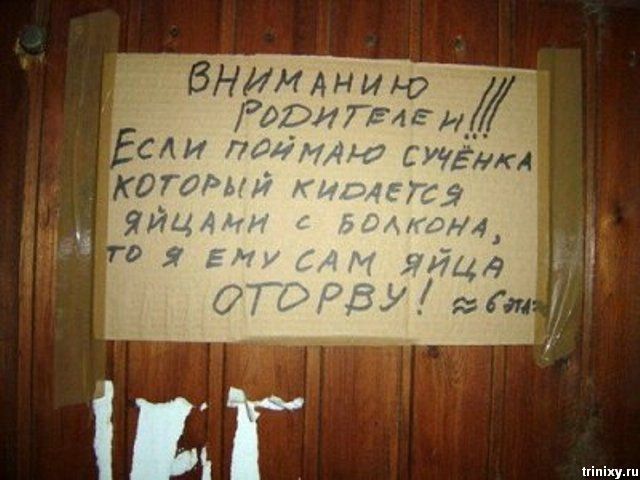 ВНИМАНИЮ
РОДИТЕЛЕЙ!!!
ЕСЛИ ПОЙМАЮ СУЧЁНКА
КОТОРЫЙ КИДАЕТСЯ
ЯЙЦАМИ С БОЛКОНА,
ТО Я ЕМУ САМ ЯЙЦА
ОТОРВУ! ≈ 6 ЭТАЖ
trinixy.ru